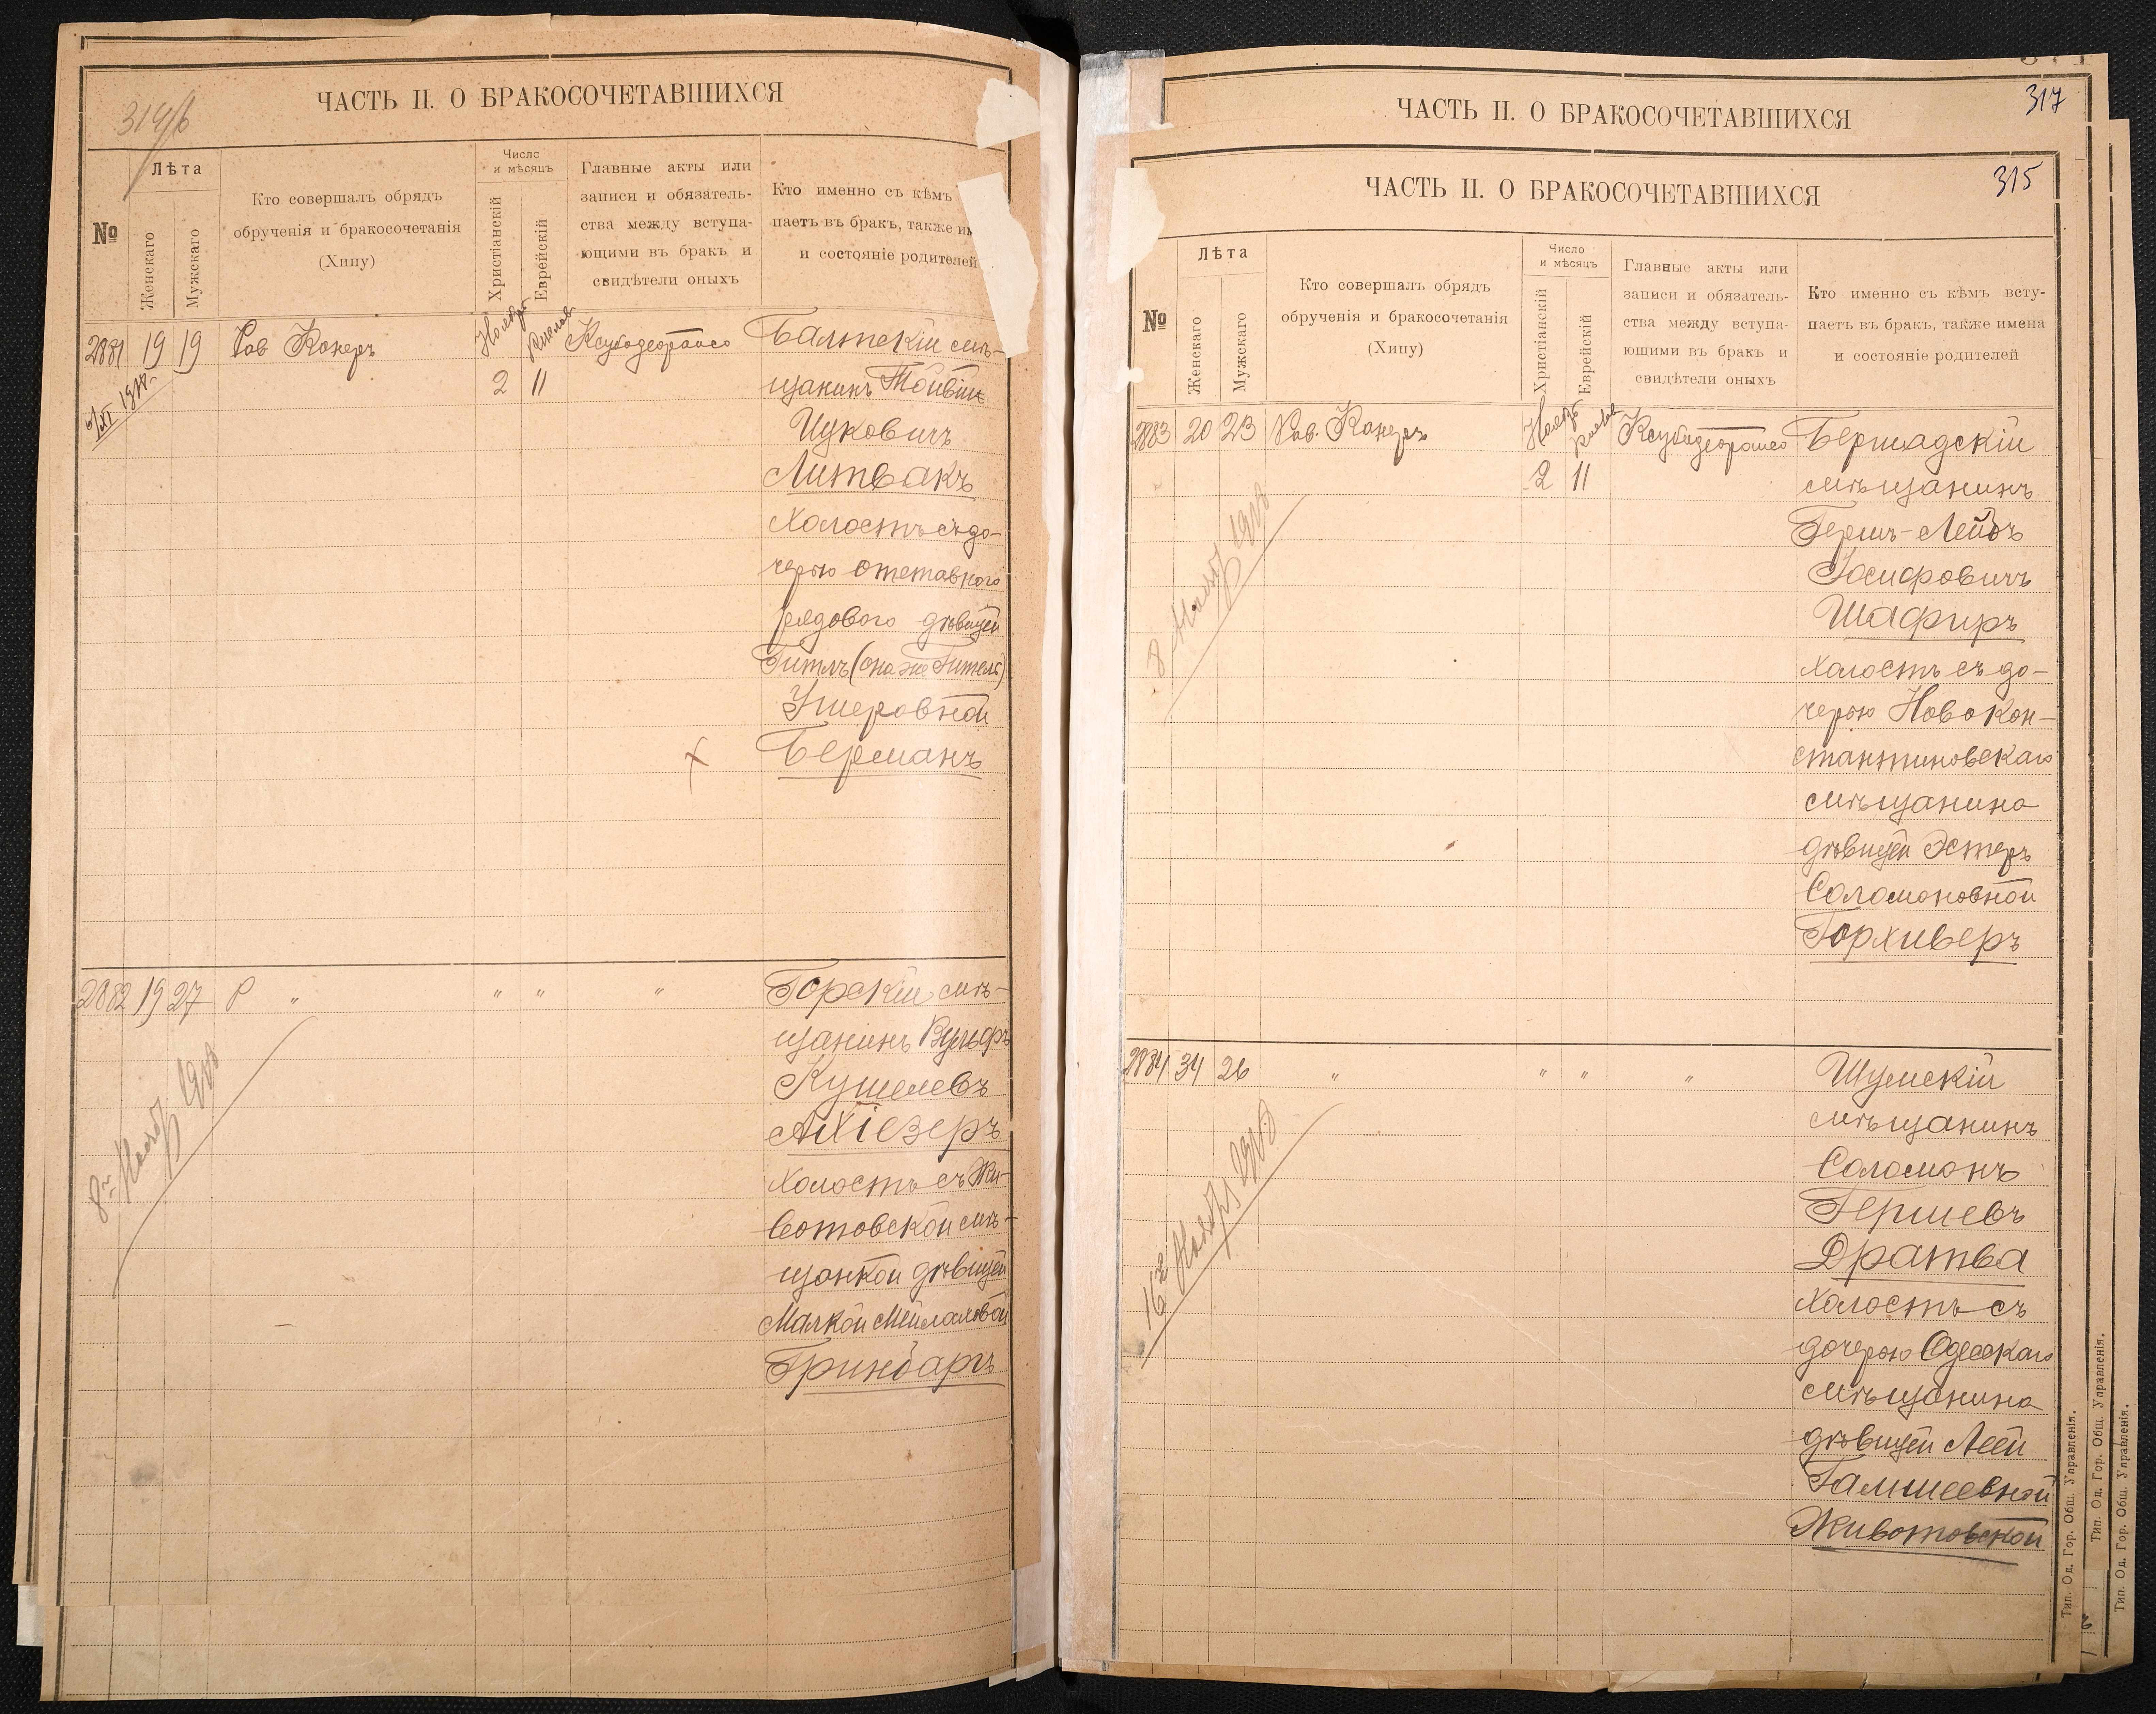 ЧАСТЬ II. О БРАКОСОЧЕТАВШИХСЯ
№
Лѣта
Женскаго
Мужскаго
Кто совершалъ обрядъ
обрученія и бракосочетанія
(Хипу)
Число
и мѣсяцъ
Христіанскій
Еврейскій
Главные акты или
записи и обязатель-
ства между вступа-
ющими въ бракъ и
свидѣтели оныхъ
Кто именно съ кѣмъ
паетъ въ бракъ, также
и состояніе родителей
2881 19 19
2 11
Балтскій мѣ-
щанинъ
Ицковичъ
Литвакъ
холостъ съ до-
черью отставного
рядового дѣвицей
Гитль (она же Гитель)
Ушеровной
Берманъ
2882 19 27 Р " " " "
8 1908
Горскій мѣ-
щанинъ Вульфъ
Кушелевъ
Ахіезеръ
холостъ съ Жи-
вотовской мѣ-
щанкой дѣвицей
Малкой Мейлаховой
Гринбаргъ
317
ЧАСТЬ II. О БРАКОСОЧЕТАВШИХСЯ
315
ЧАСТЬ II. О БРАКОСОЧЕТАВШИХСЯ
№
Лѣта
Женскаго
Мужскаго
Кто совершалъ обрядъ
обрученія и бракосочетанія
(Хипу)
Число
и мѣсяцъ
Христіанскій
Еврейскій
Главные акты или
записи и обязатель-
ства между вступа-
ющими въ бракъ и
свидѣтели оныхъ
Кто именно съ кѣмъ всту-
паетъ въ бракъ, также имена
и состояніе родителей
2883 20 23
2 11
8 1908
Бершадскій
мѣщанинъ
Гершъ-Лейбъ
Іосифовичъ
Шафиръ
холостъ съ до-
черью Новокон-
стантиновскаго
мѣщанина
дѣвицей Эстеръ
Соломоновной
Горхиверъ
2884 34 26 " " " "
16 Ноября 1908
Шумскій
мѣщанинъ
Соломонъ
Гершевъ
Дратва
холостъ съ
дочерью Одесскаго
мѣщанина
дѣвицей Леей
Гамшеевной
Животовской
Тип. Од. Гор. Общ. Управленія.
Тип. Од. Гор. Общ. Управленія.
Тип. Од. Гор. Общ. Управленія.